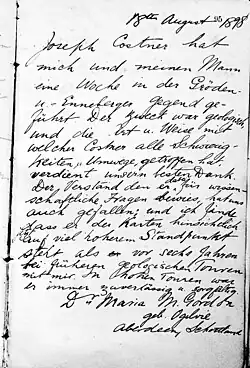 18ten August 1898
Joseph Costner hat
mich und meinen Mann
eine Woche in der Gröden-
u. Enneberger Gegend ge-
führt. Der Zweck war geologisch
und die Art u. Weise mit
welcher Costner alle Schwierig-
keiten, Umwege, getroffen hat
verdient unsern besten Dank.
Der Verstand den er für wissen-
schaftliche Fragen bewies, hat uns
auch gefallen; und ich finde
dass er der Karten hinsichtlich
auf viel höherem Standpunkt
steht als er vor sechs Jahren
bei früheren geologischen Touren
mit mir. In hohen Touren war
er immer zuverlässig u. sorgfältig
Dr Maria M. Gordon
geb. Ogilvie
Aberdeen, Schottland